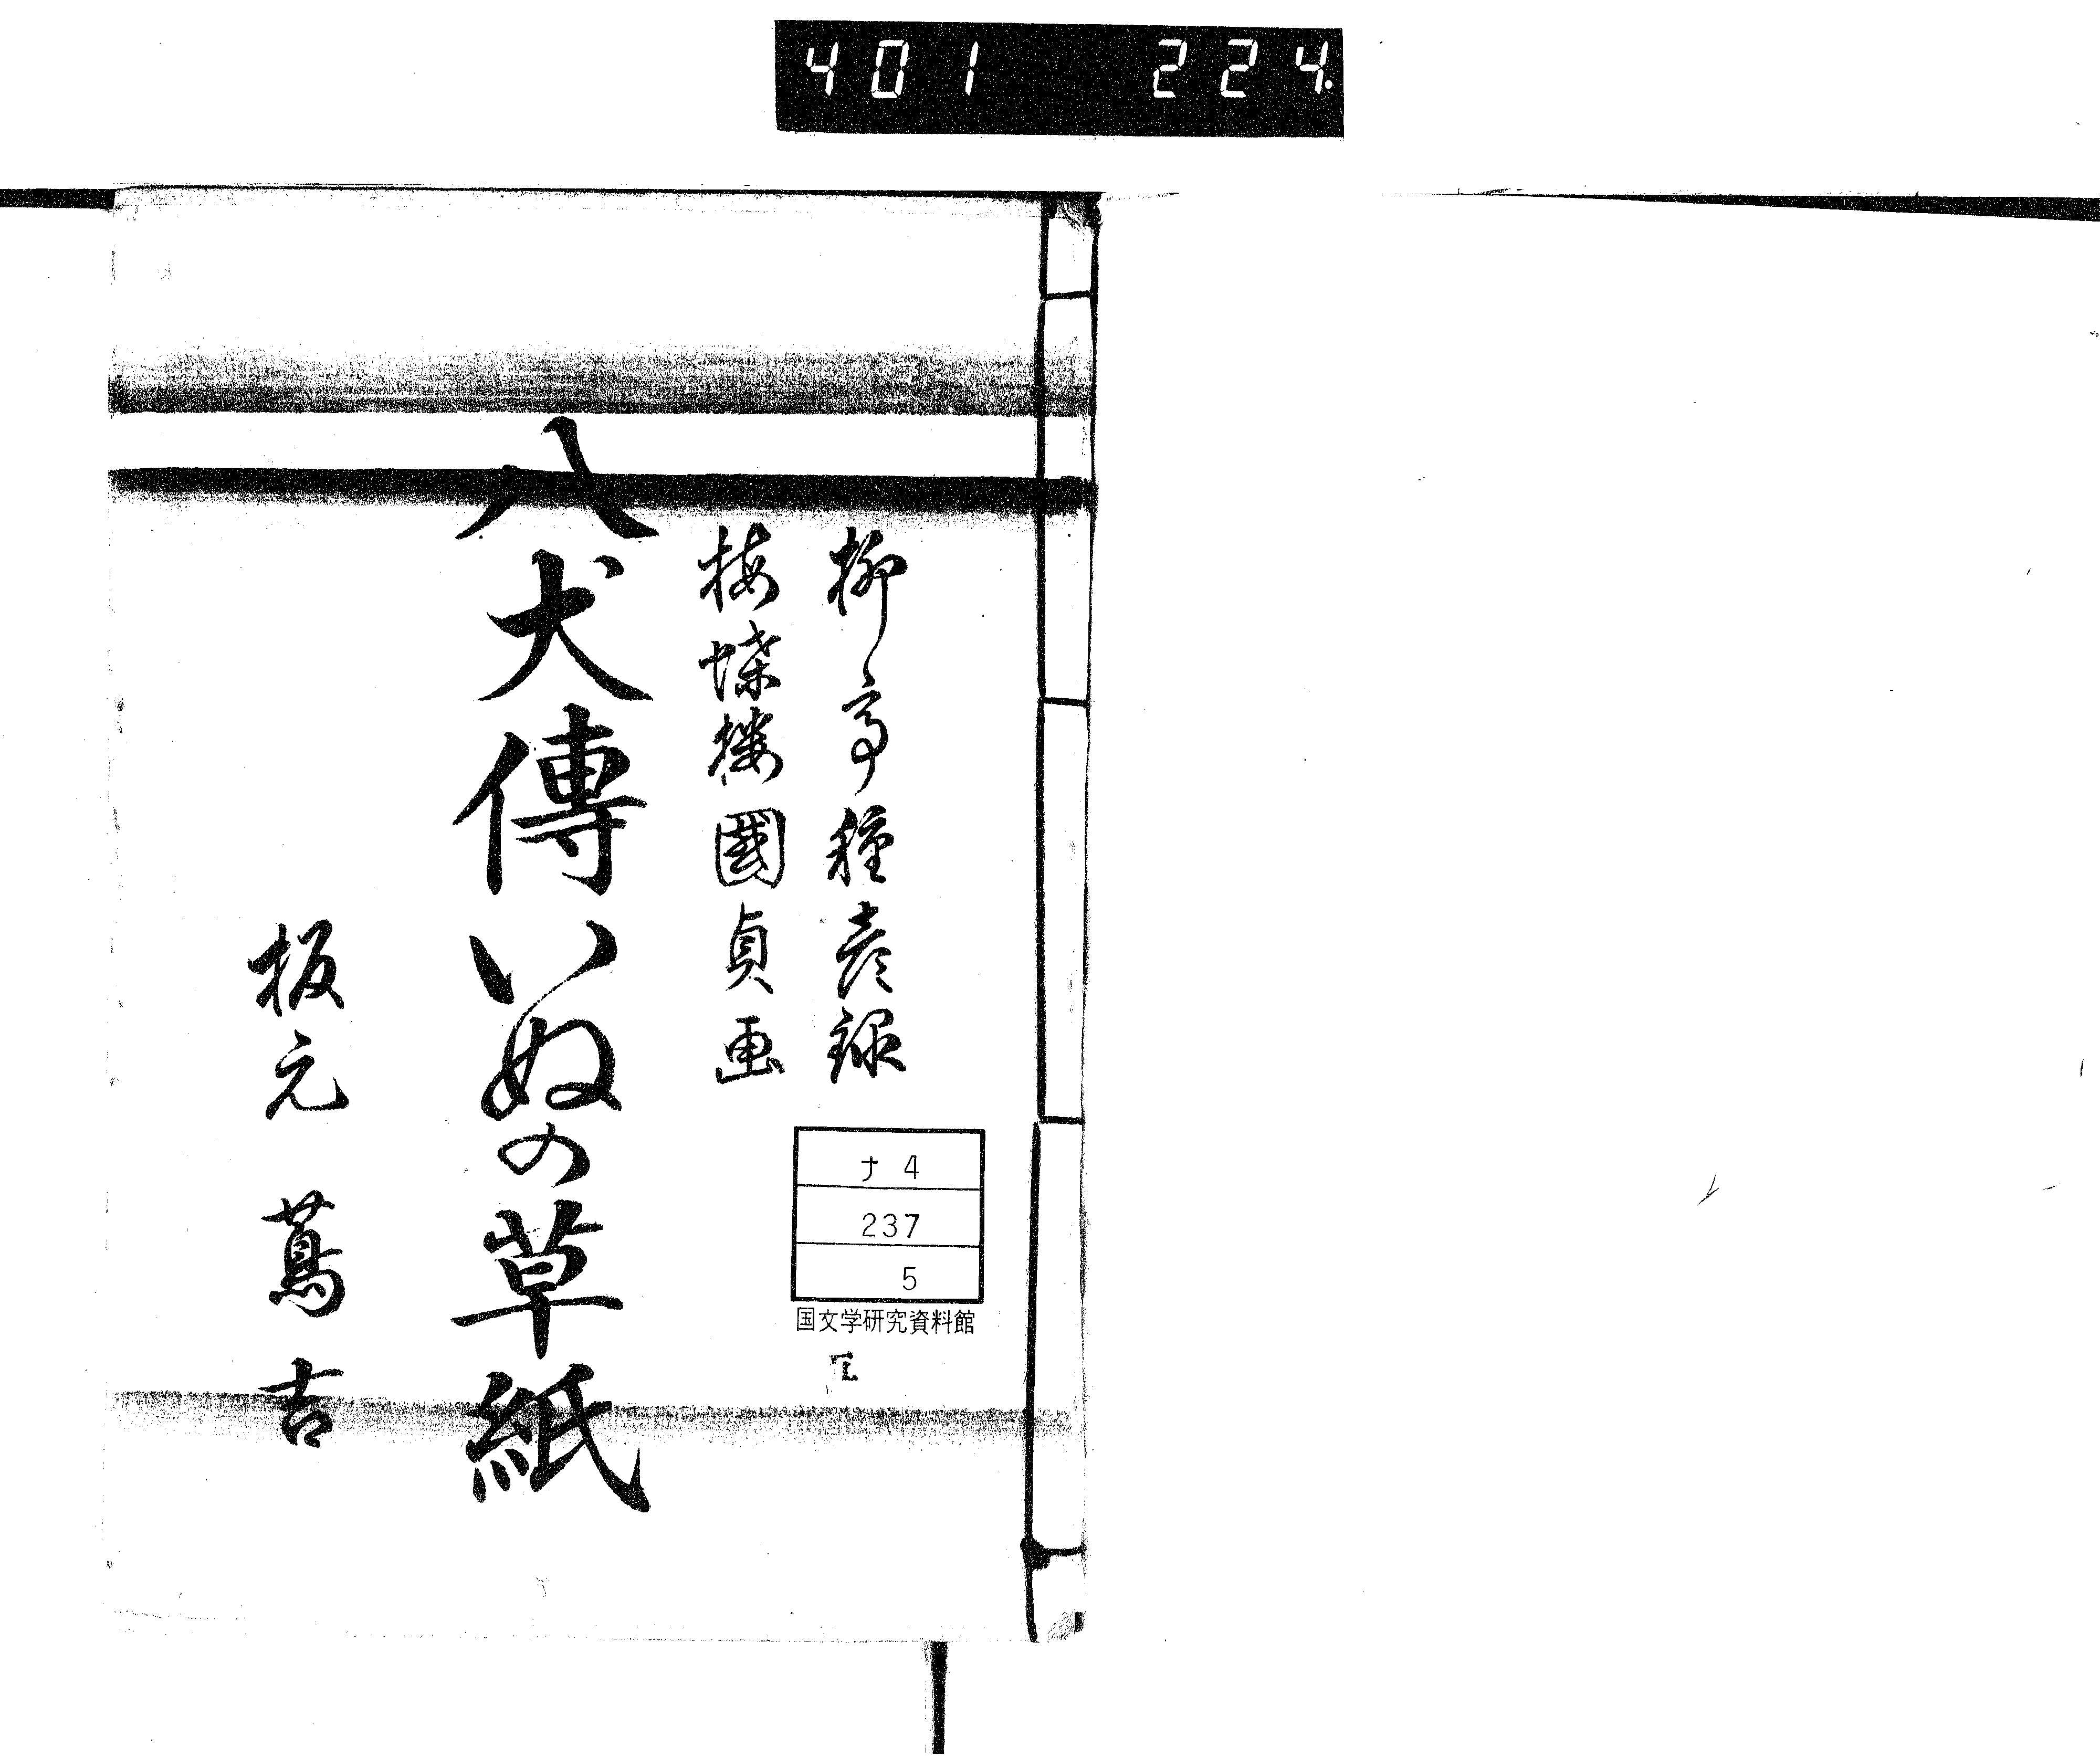 401 224.
柳亭種彦録
梅蝶楼國貞画
八犬傳いぬの草紙
板元 蔦吉
ナ4
237
5
国文学研究資料館